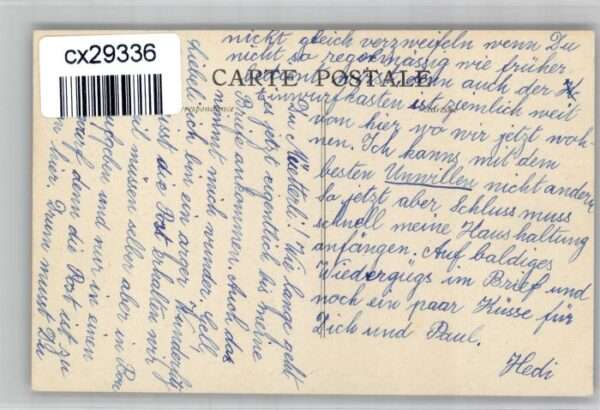 cx29336
CARTE POSTALE
Du Mütterli! Wie lange geht
es jetzt eigentlich bis meine
Briefe ankommen. Auch das
nimmt mich wunder. Gell
Liebeli ich bin ein arger Wunderfitz
die Post erhalten wir
müsen selber aber in
aufgeben und nur in einen
denn die Post ist zu
hier. Drum musst Du
nicht gleich verzweifeln wenn Du
nicht so regelmässig wie früher
denn auch der
Einwurfkasten ist ziemlich weit
von hier wo wir jetzt woh-
nen. Ich kanns mit dem
besten Unwillen nicht ändern
So jetzt aber Schluss muss
schnell meine Haushaltung
anfangen. Auf baldiges
im Brief und
noch ein paar Küsse für
Dich und Paul.
Hedi